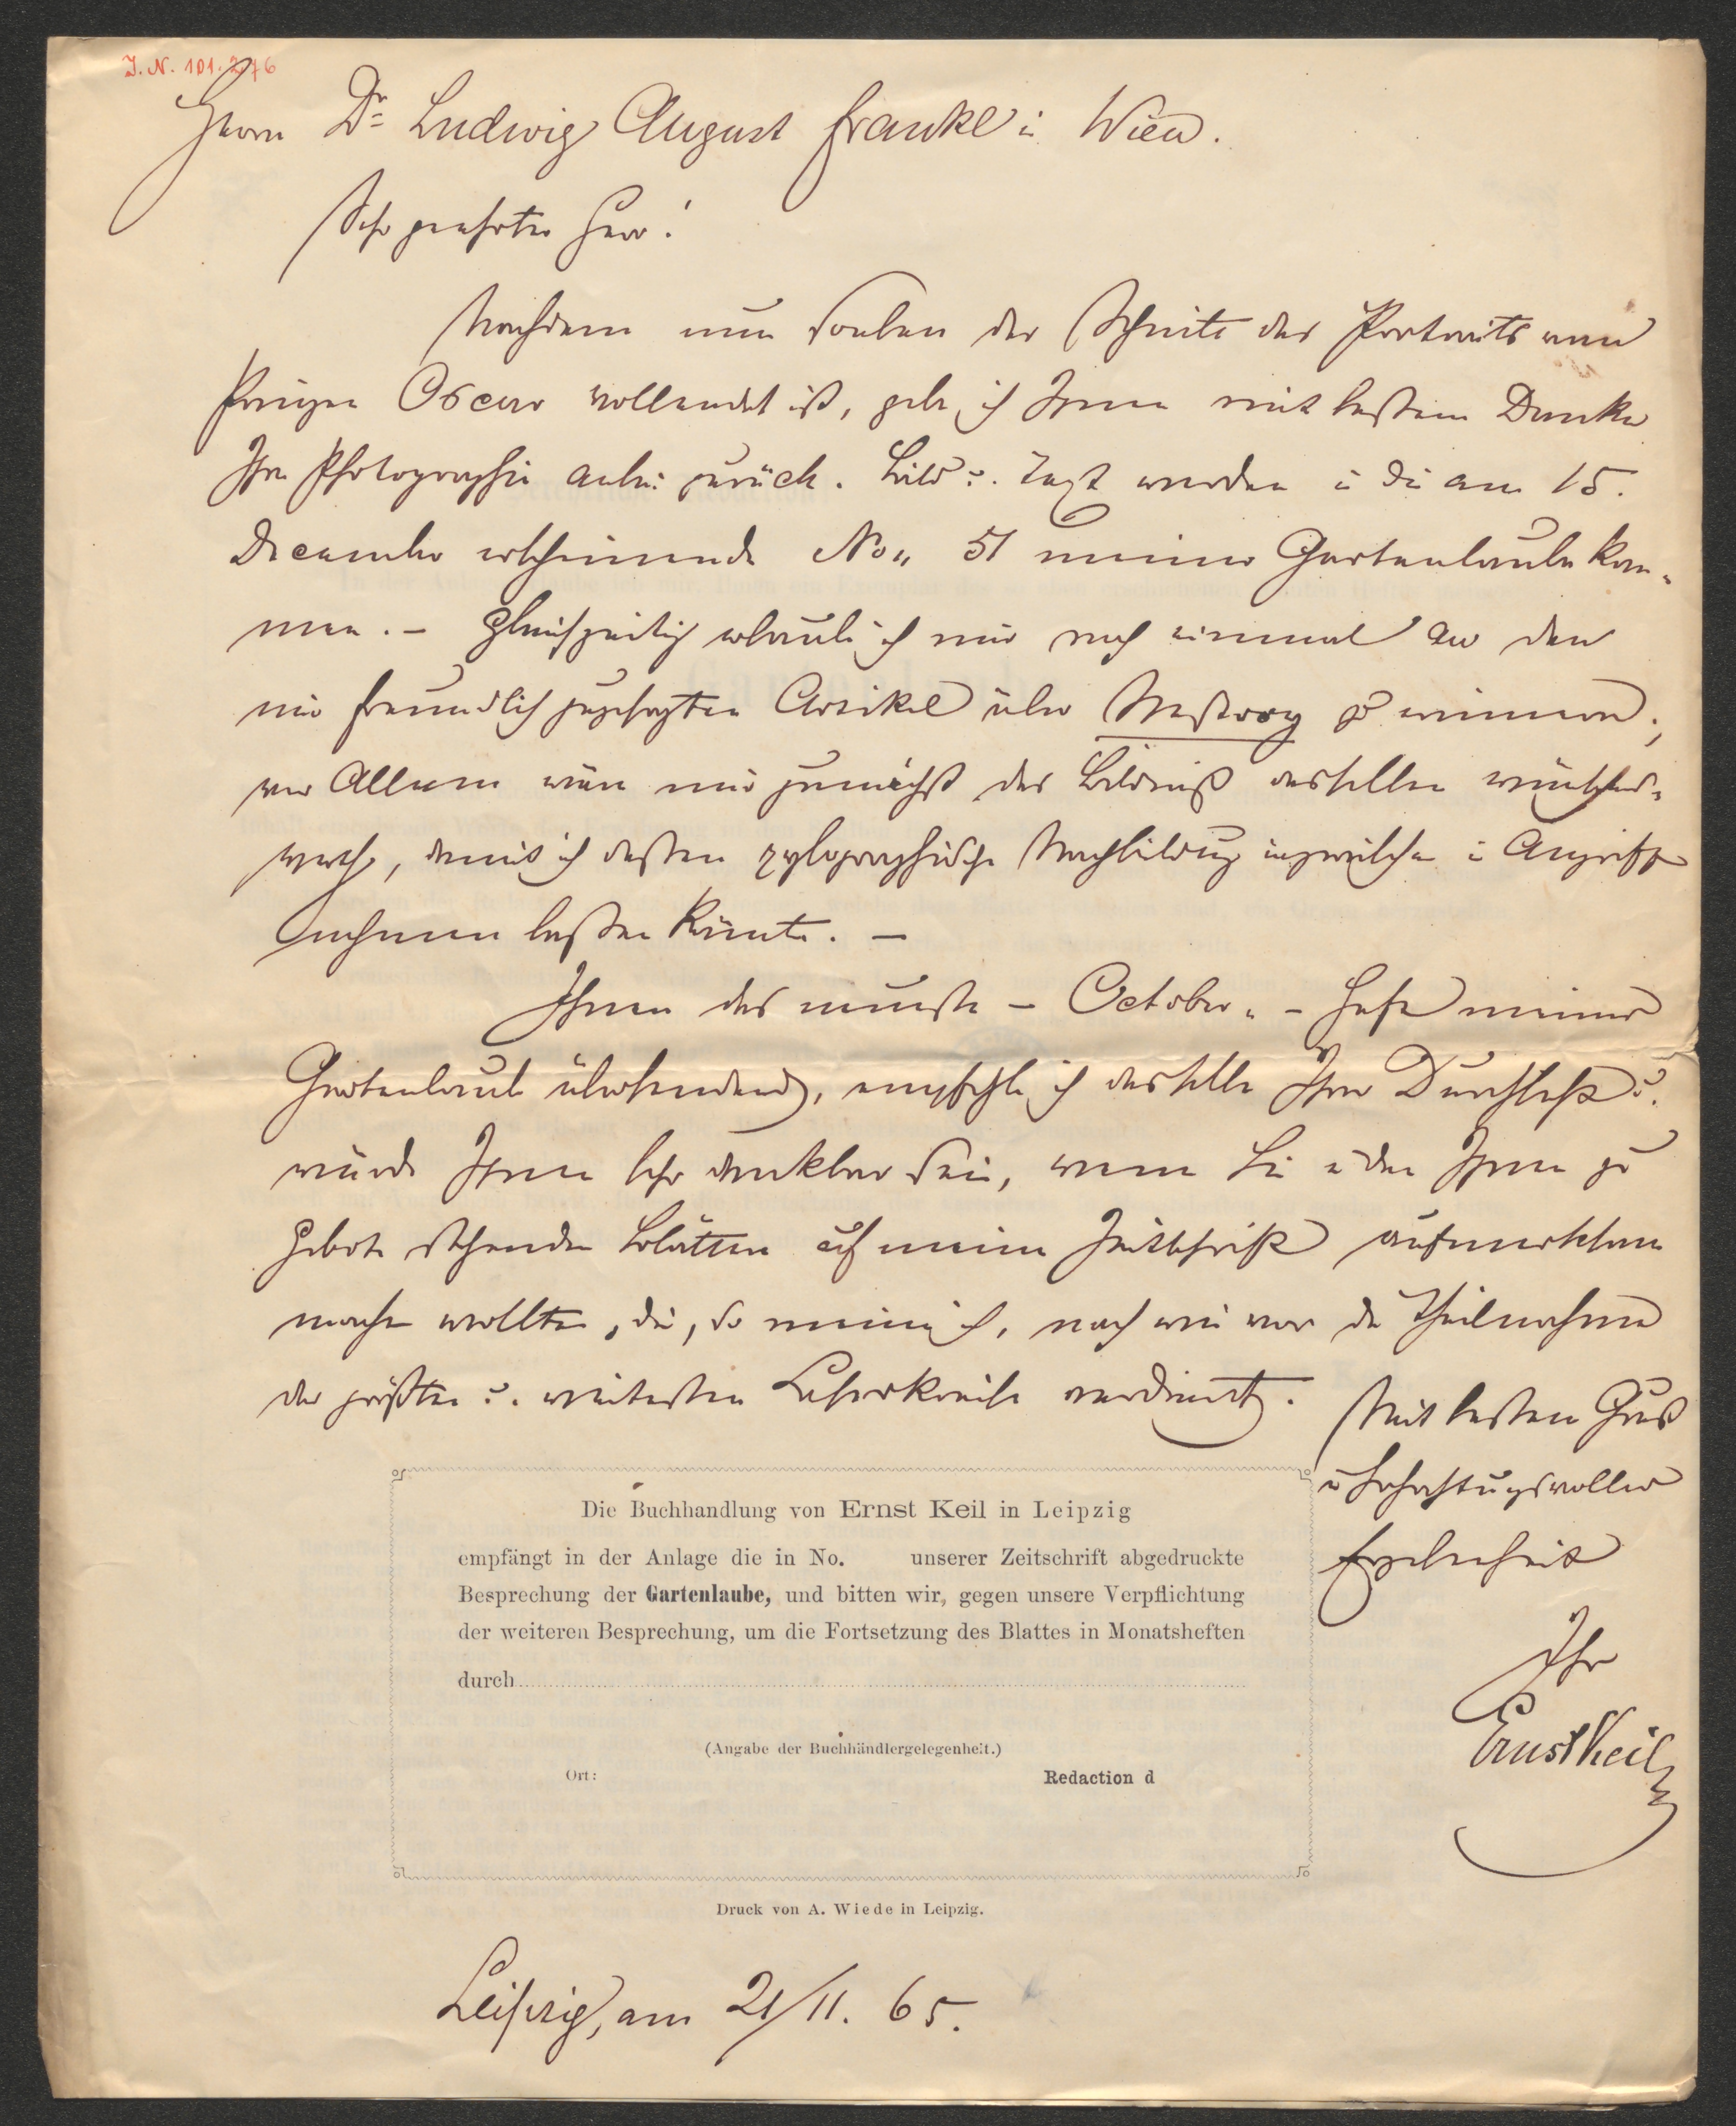 J. N. 101.276
Herrn Dr Ludwig August Frankl in Wien.
Sehr geehrter Herr!
Nachdem nun soeben der Schnitt des Portraits vom
Prinzen Oscar vollendet ist, gebe ich Ihnen mit bestem Danke
Ihre Photographie anbei zurück. Bild u. Text werden in die am 15.
December erscheinende No. 51 meiner Gartenlaube kom-
men. – Gleichzeitig erlaube ich mir noch einmal an den
mir freundlich zugesagten Artikel über Nestroy zu erinnern;
vor Allem wäre mir zunächst das Bildniß desselben wünschens-
werth, damit ich dessen xylographische Nachbildung inzwischen in Angriff
nehmen lassen könnte. –
Ihnen das neueste – October- – Heft meiner
Gartenlaube übersendend, empfehle ich dasselbe Ihrer Durchsicht u.
würde Ihnen sehr dankbar sein, wenn Sie in den Ihnen zu
Gebote stehenden Blättern auf meine Zeitschrift aufmerksam
machen wollten, die, so meine ich, nach wie vor die Theilnahme
der größten u. weitesten Leserkreise verdient.
Mit bestem Gruß
u. hochachtungsvoller
Ergebenheit
Ihr
Ernst Keil
Die Buchhandlung von Ernst Keil in Leipzig
empfängt in der Anlage die in No. unserer Zeitschrift abgedruckte
Besprechung der Gartenlaube, und bitten wir, gegen unsere Verpflichtung
der weiteren Besprechung, um die Fortsetzung des Blattes in Monatsheften
durch
(Angabe der Buchhändlergelegenheit.)
Ort: Redaction d
Druck von A. Wiede in Leipzig.
Leipzig, am 21/11. 65.